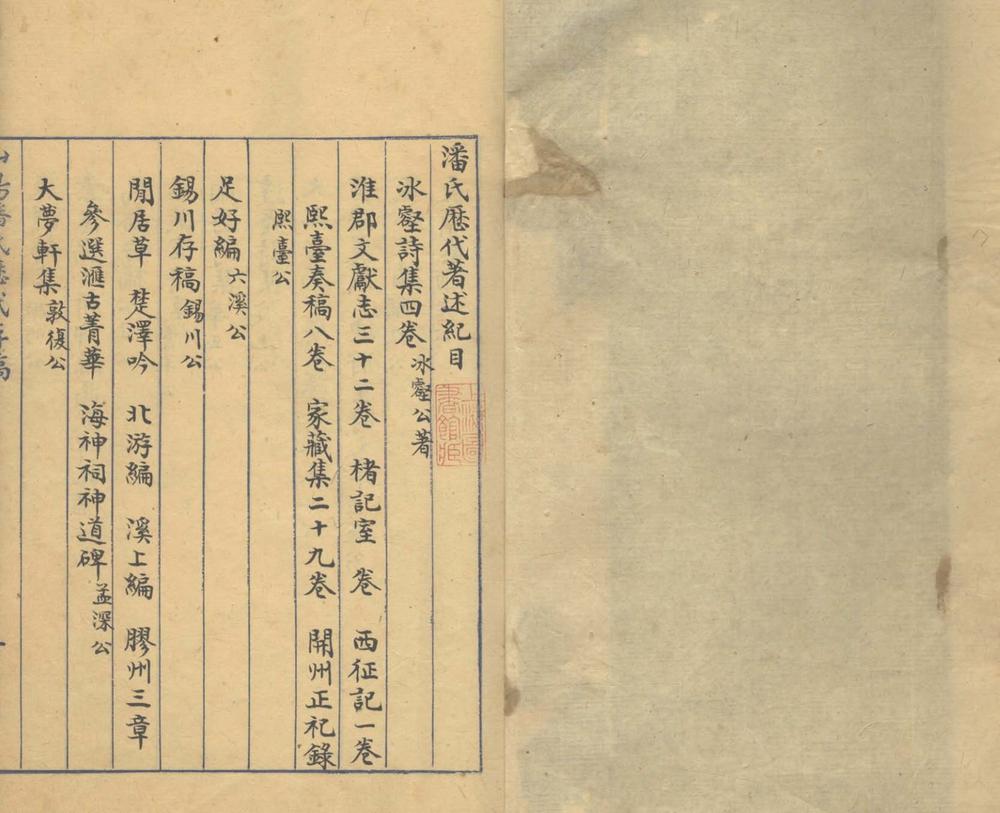 潘氏歷代著述紀目
冰壑詩集四卷 冰壑公著
淮郡文獻志三十二卷 楮記室 卷 西征記一卷
熙臺奏稿八卷 家藏集二十九卷 開州正祀錄
熙臺公
足好編 六溪公
錫川存稿 錫川公
閒居草 楚澤吟 北游編 溪上編 膠州三章
參選滙古菁華 海神祠神道碑 孟深公
大夢軒集 敦復公
潘氏歷代存稿